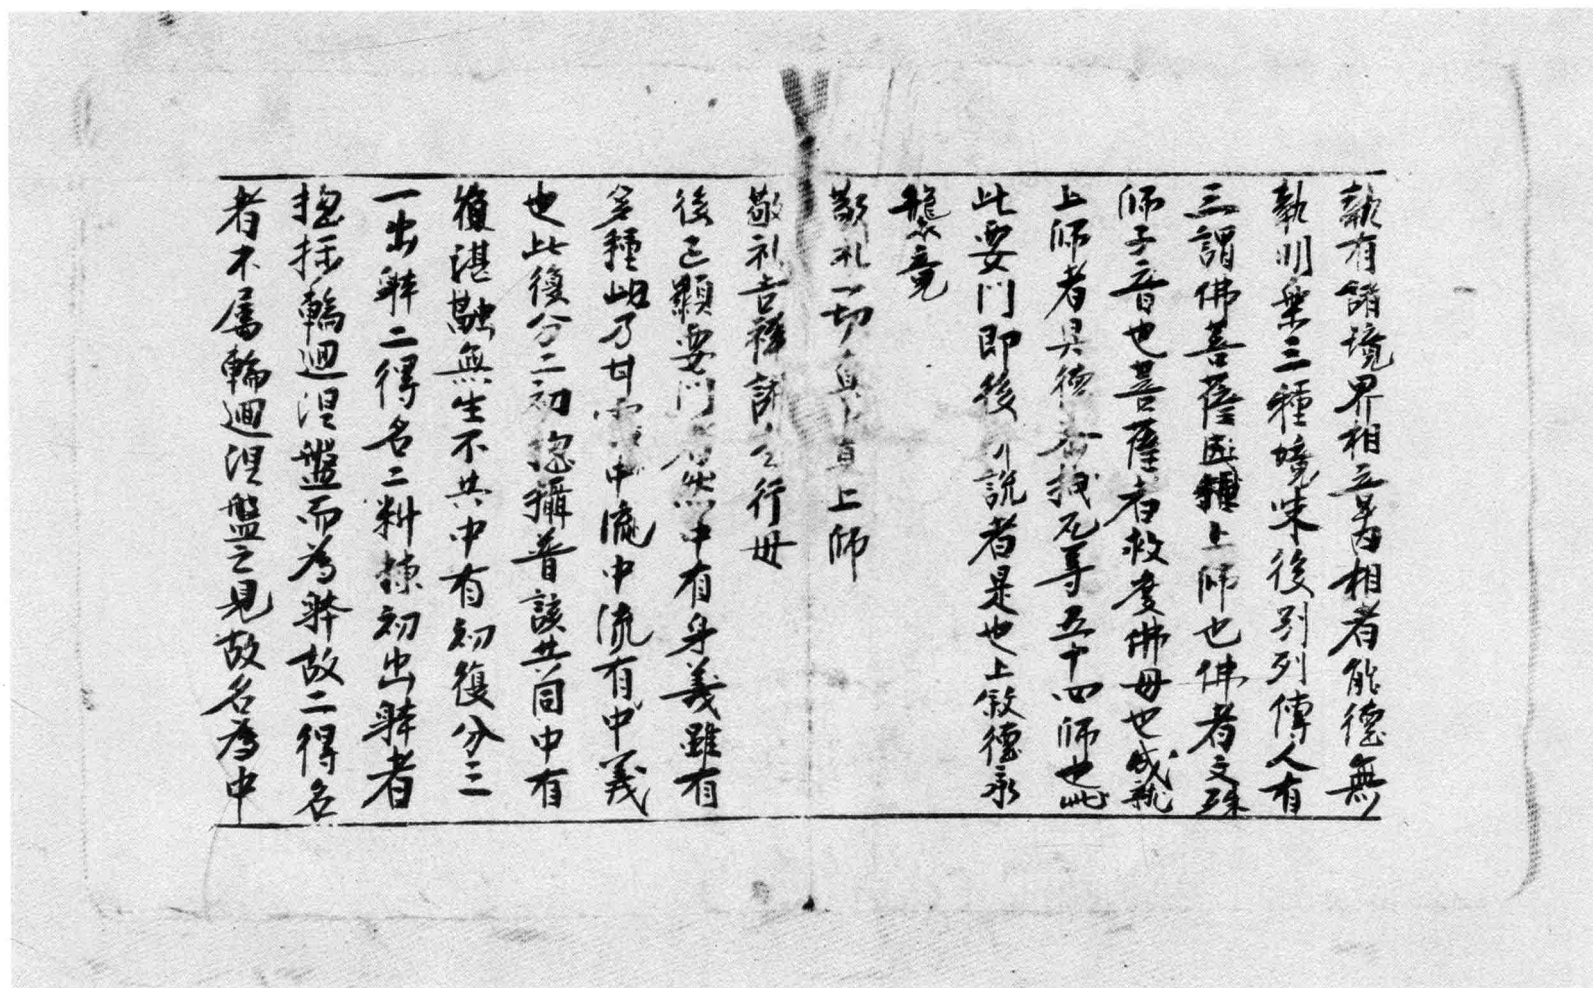 執有諸境界相立著相者能德無
執明乗三種境味後別列傳人有
三謂佛菩薩上師也佛者文殊
師子音也菩薩者救度佛母也成就
上師者具德元等五十四師也此
此要門即後說者是也上叙德永
竟
敬礼一切真上師
敬礼吉祥行母
後已顯要門中有身義雖有
多種此乃中流中流有中義
也此復分二初揔攝普該共同中有
復湛融無生不共中有初復分三
一出躰二得名二料揀初出躰者
揔括輪迴涅盤而為躰故二得名
者不属輪迴涅盤之見故名為中